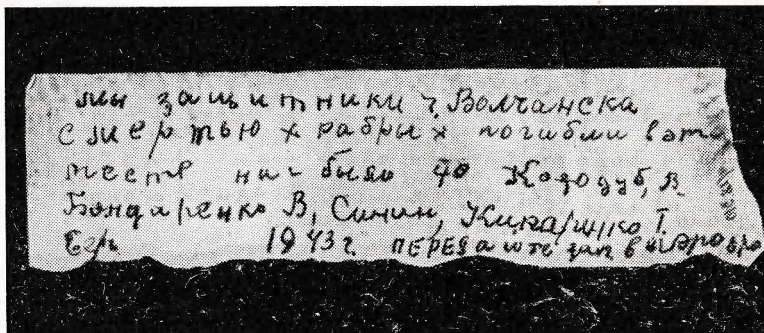 мы защитники г. Волчанска
смертью храбрых погибли в это
месте нас было 40 Козодуб, В.
Бондаренко В, Синин, Кинаринко Т.
1943 г. ПЕРЕдаите